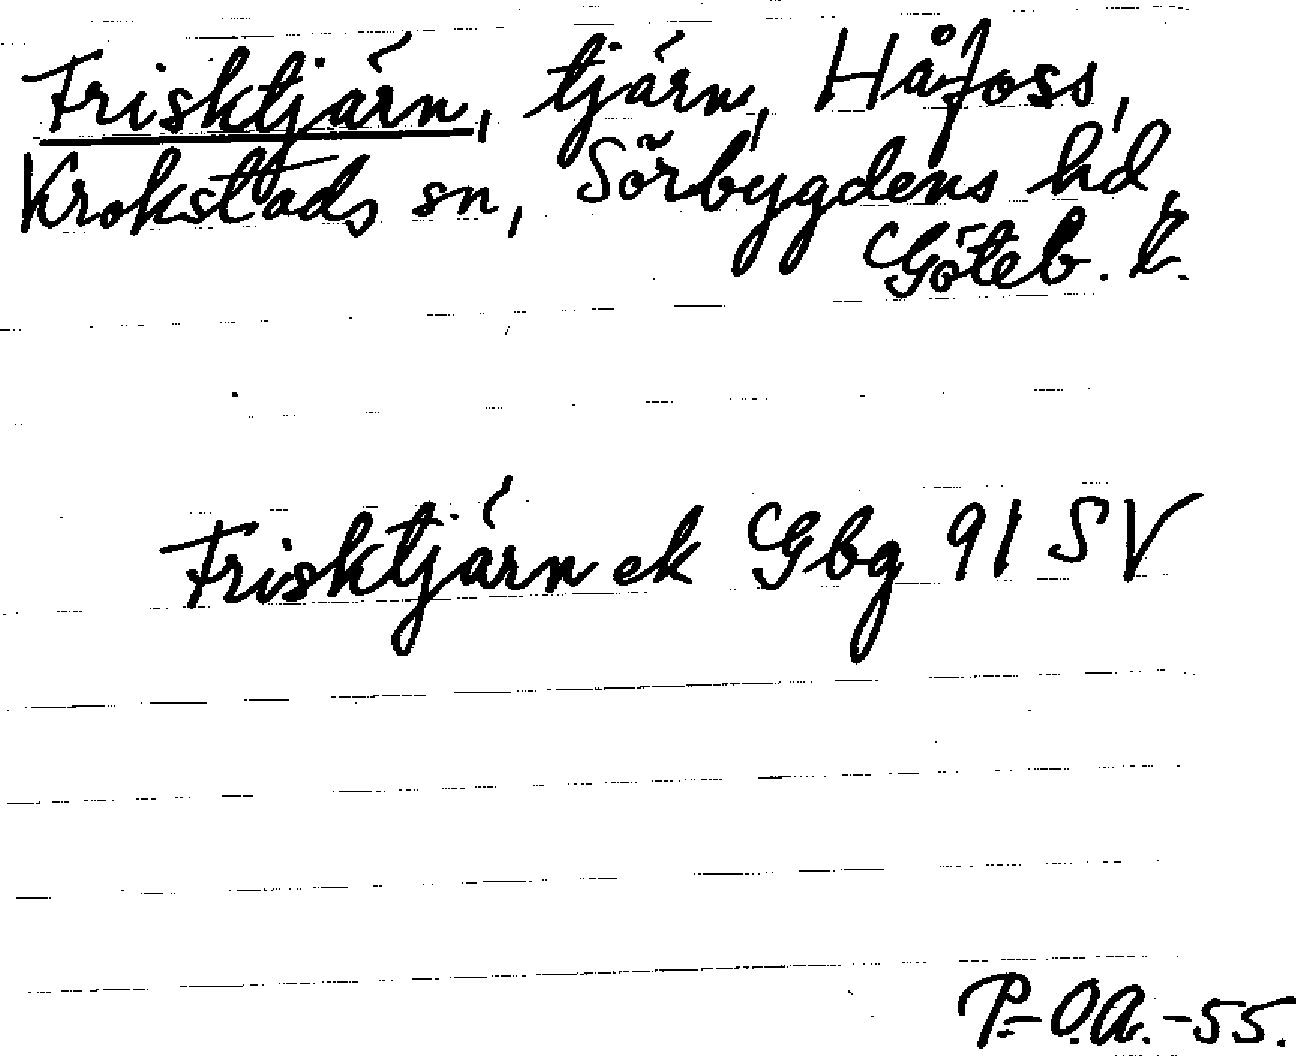 Frisktjärn, tjärn, Håfoss,
Krokstads sn, Sörbygdens hd,
Göteb. l.
Frisktjärn ek Gbg 91 SV
P.-O.A.-55.